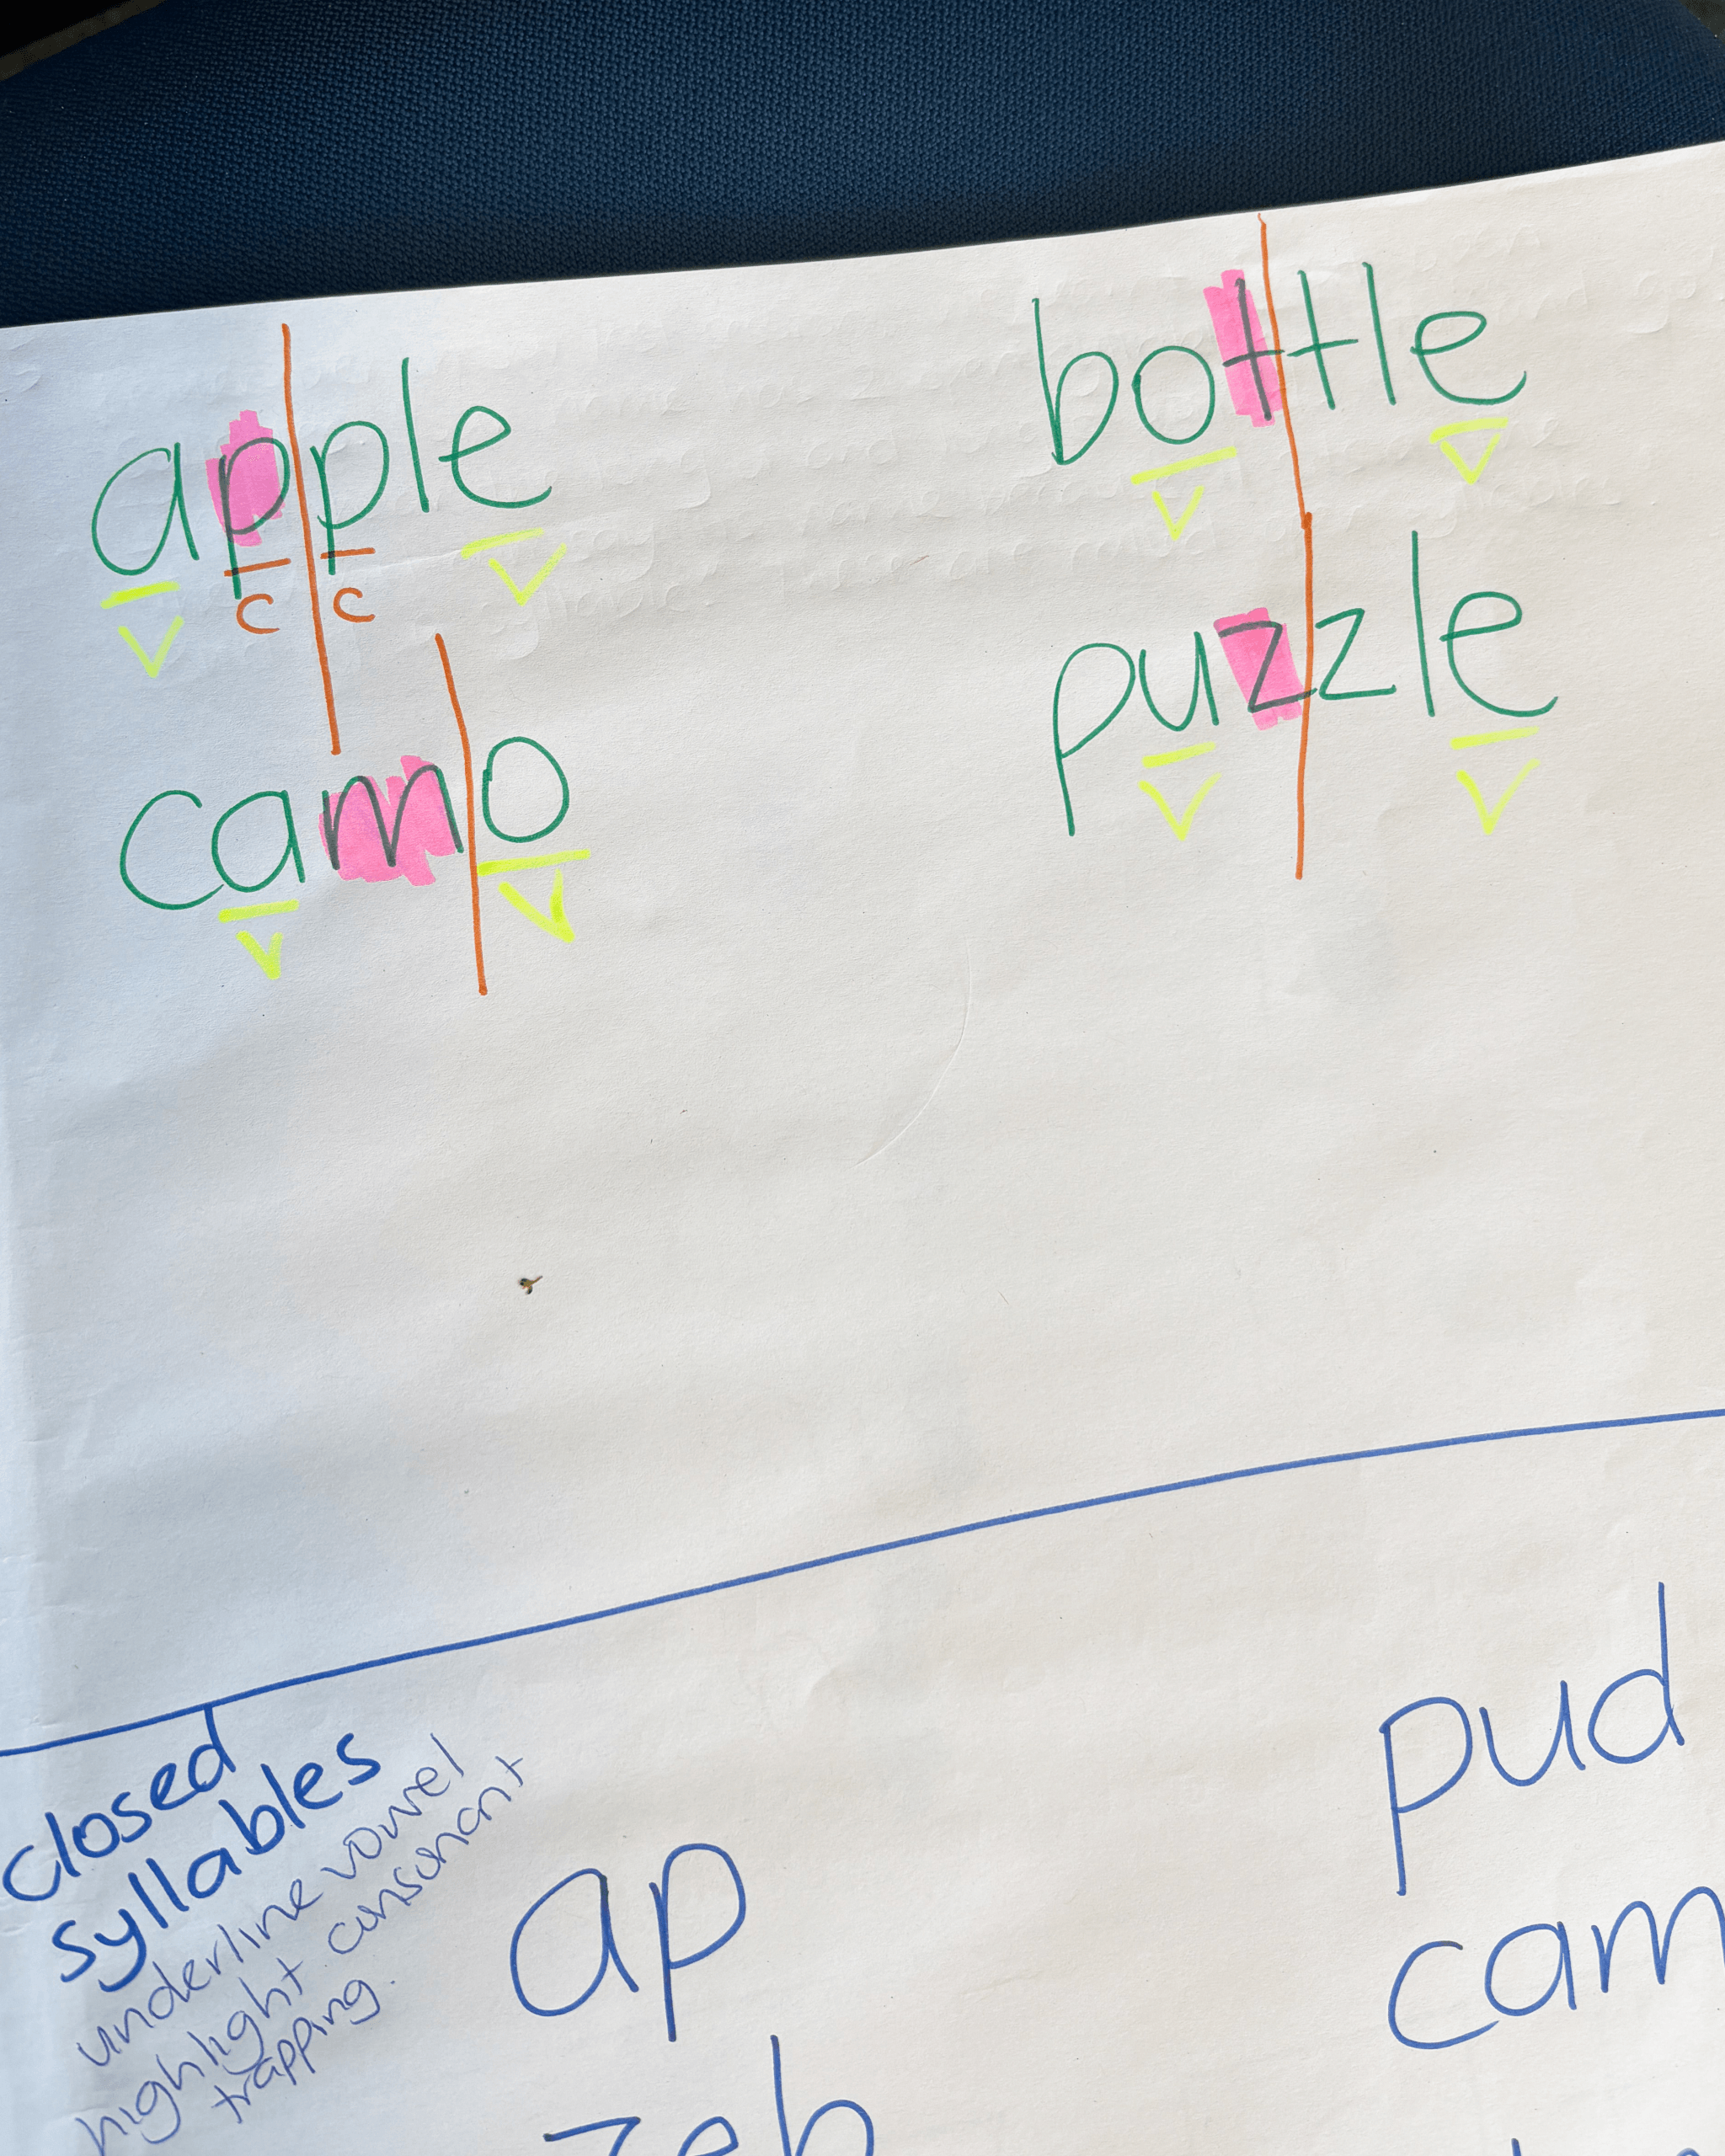 apple
v c c v
camo
v v
bottle
v v
puzzle
v v
closed
syllables
underline vowel
highlight consonant
trapping.
ap
zeb
pud
cam